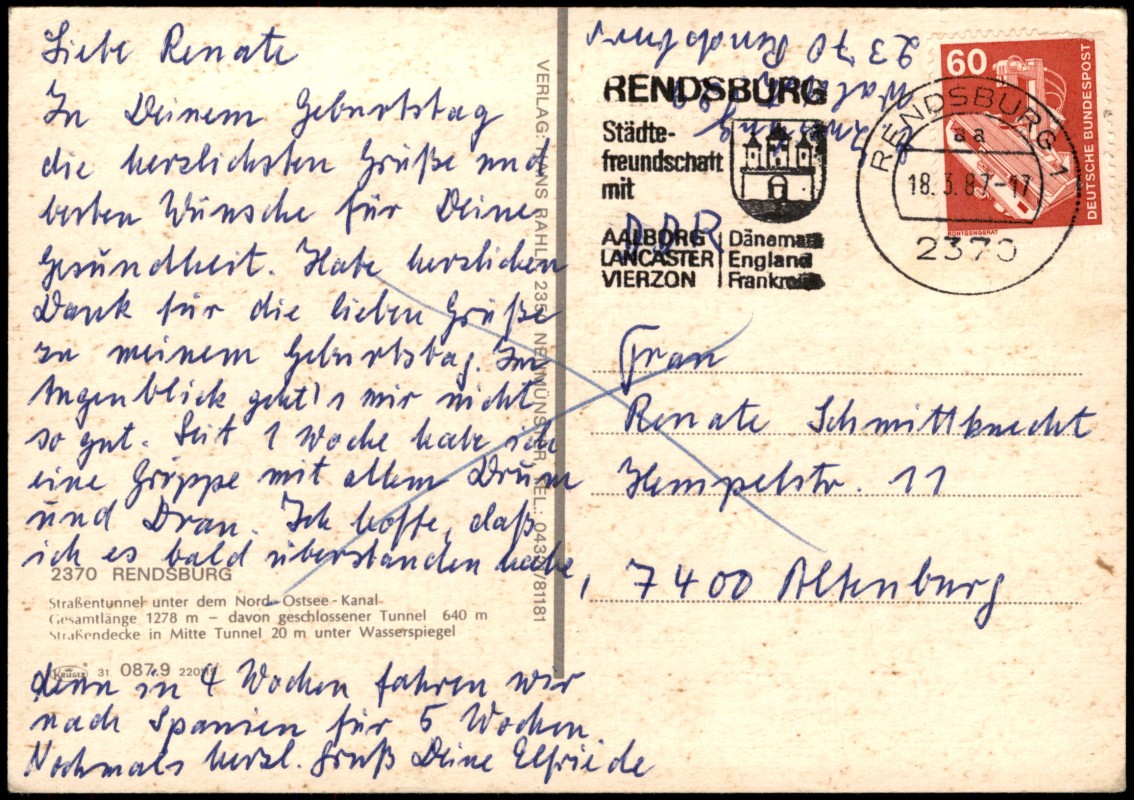 Liebe Renate
Zu Deinem Geburtstag
die herzlichsten Grüße und
besten Wünsche für Deine
Gesundheit. Habe herzlichen
Dank für die lieben Grüße
zu meinem Geburtstag. Im
Augenblick geht's mir nicht
so gut. Seit 1 Woche habe ich
eine Grippe mit allem Drum
und Dran. Ich hoffe, daß
ich es bald überstanden habe,
2370 RENDSBURG
Straßentunnel unter dem Nord-Ostsee-Kanal
Gesamtlänge 1278 m – davon geschlossener Tunnel 640 m
Straßendecke in Mitte Tunnel 20 m unter Wasserspiegel
KRÜGER 31 087.9
denn in 4 Wochen fahren wir
nach Spanien für 5 Wochen.
Nochmals herzl. Gruß Deine Elfriede
VERLAG: HANS RAHLF, 2350 NEUMÜNSTER, TEL.: 04321/81181
2370 Rendsburg
RENDSBURG
Städte-
freundschaft
mit
AALBORG Dänemark
LANCASTER England
VIERZON Frankreich
DDR
RENDSBURG 1
aa
18.3.87-17
2370
60
DEUTSCHE BUNDESPOST
RÖNTGENGERÄT
Frau
Renate Schmittknecht
Hempelstr. 11
7400 Altenburg